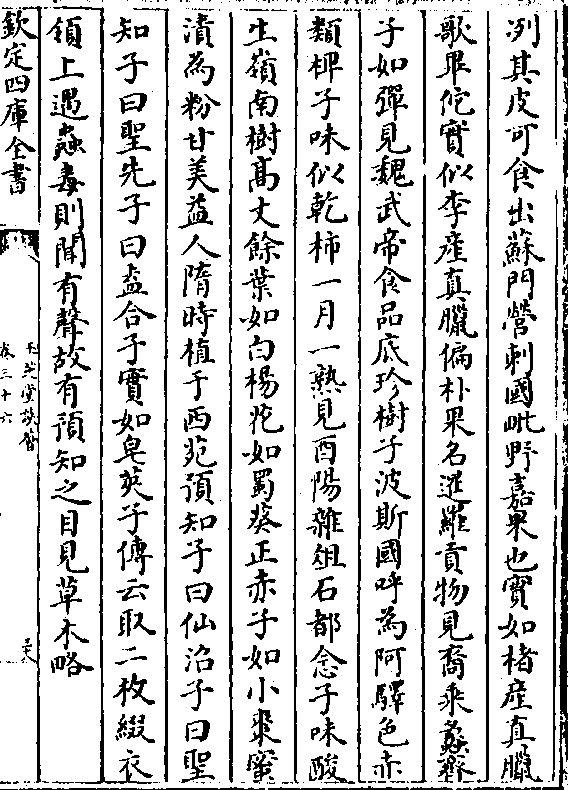 冽其皮可食出蘇門營刺國毗野嘉果也實如楮産真臘
歌畢佗實似李産真臘偏朴果名暹羅貢物見裔乘蠡齊
子如彈見魏武帝食品底珍樹子波斯國呼為阿驛色赤
類椑子味似乾柿一月一熟見酉陽雜俎石都念子味酸
生嶺南樹髙丈餘葉如白楊花如蜀葵正赤子如小棗蜜
漬為粉甘美益人隋時植于西苑預知子曰仙沿子曰聖
知子曰聖先子曰盍合子實如皂莢子傳云取二枚綴衣
領上遇蟲毒則聞有聲故有預知之目見草木略
欽定四庫全書
玉芝堂談薈
卷三十六